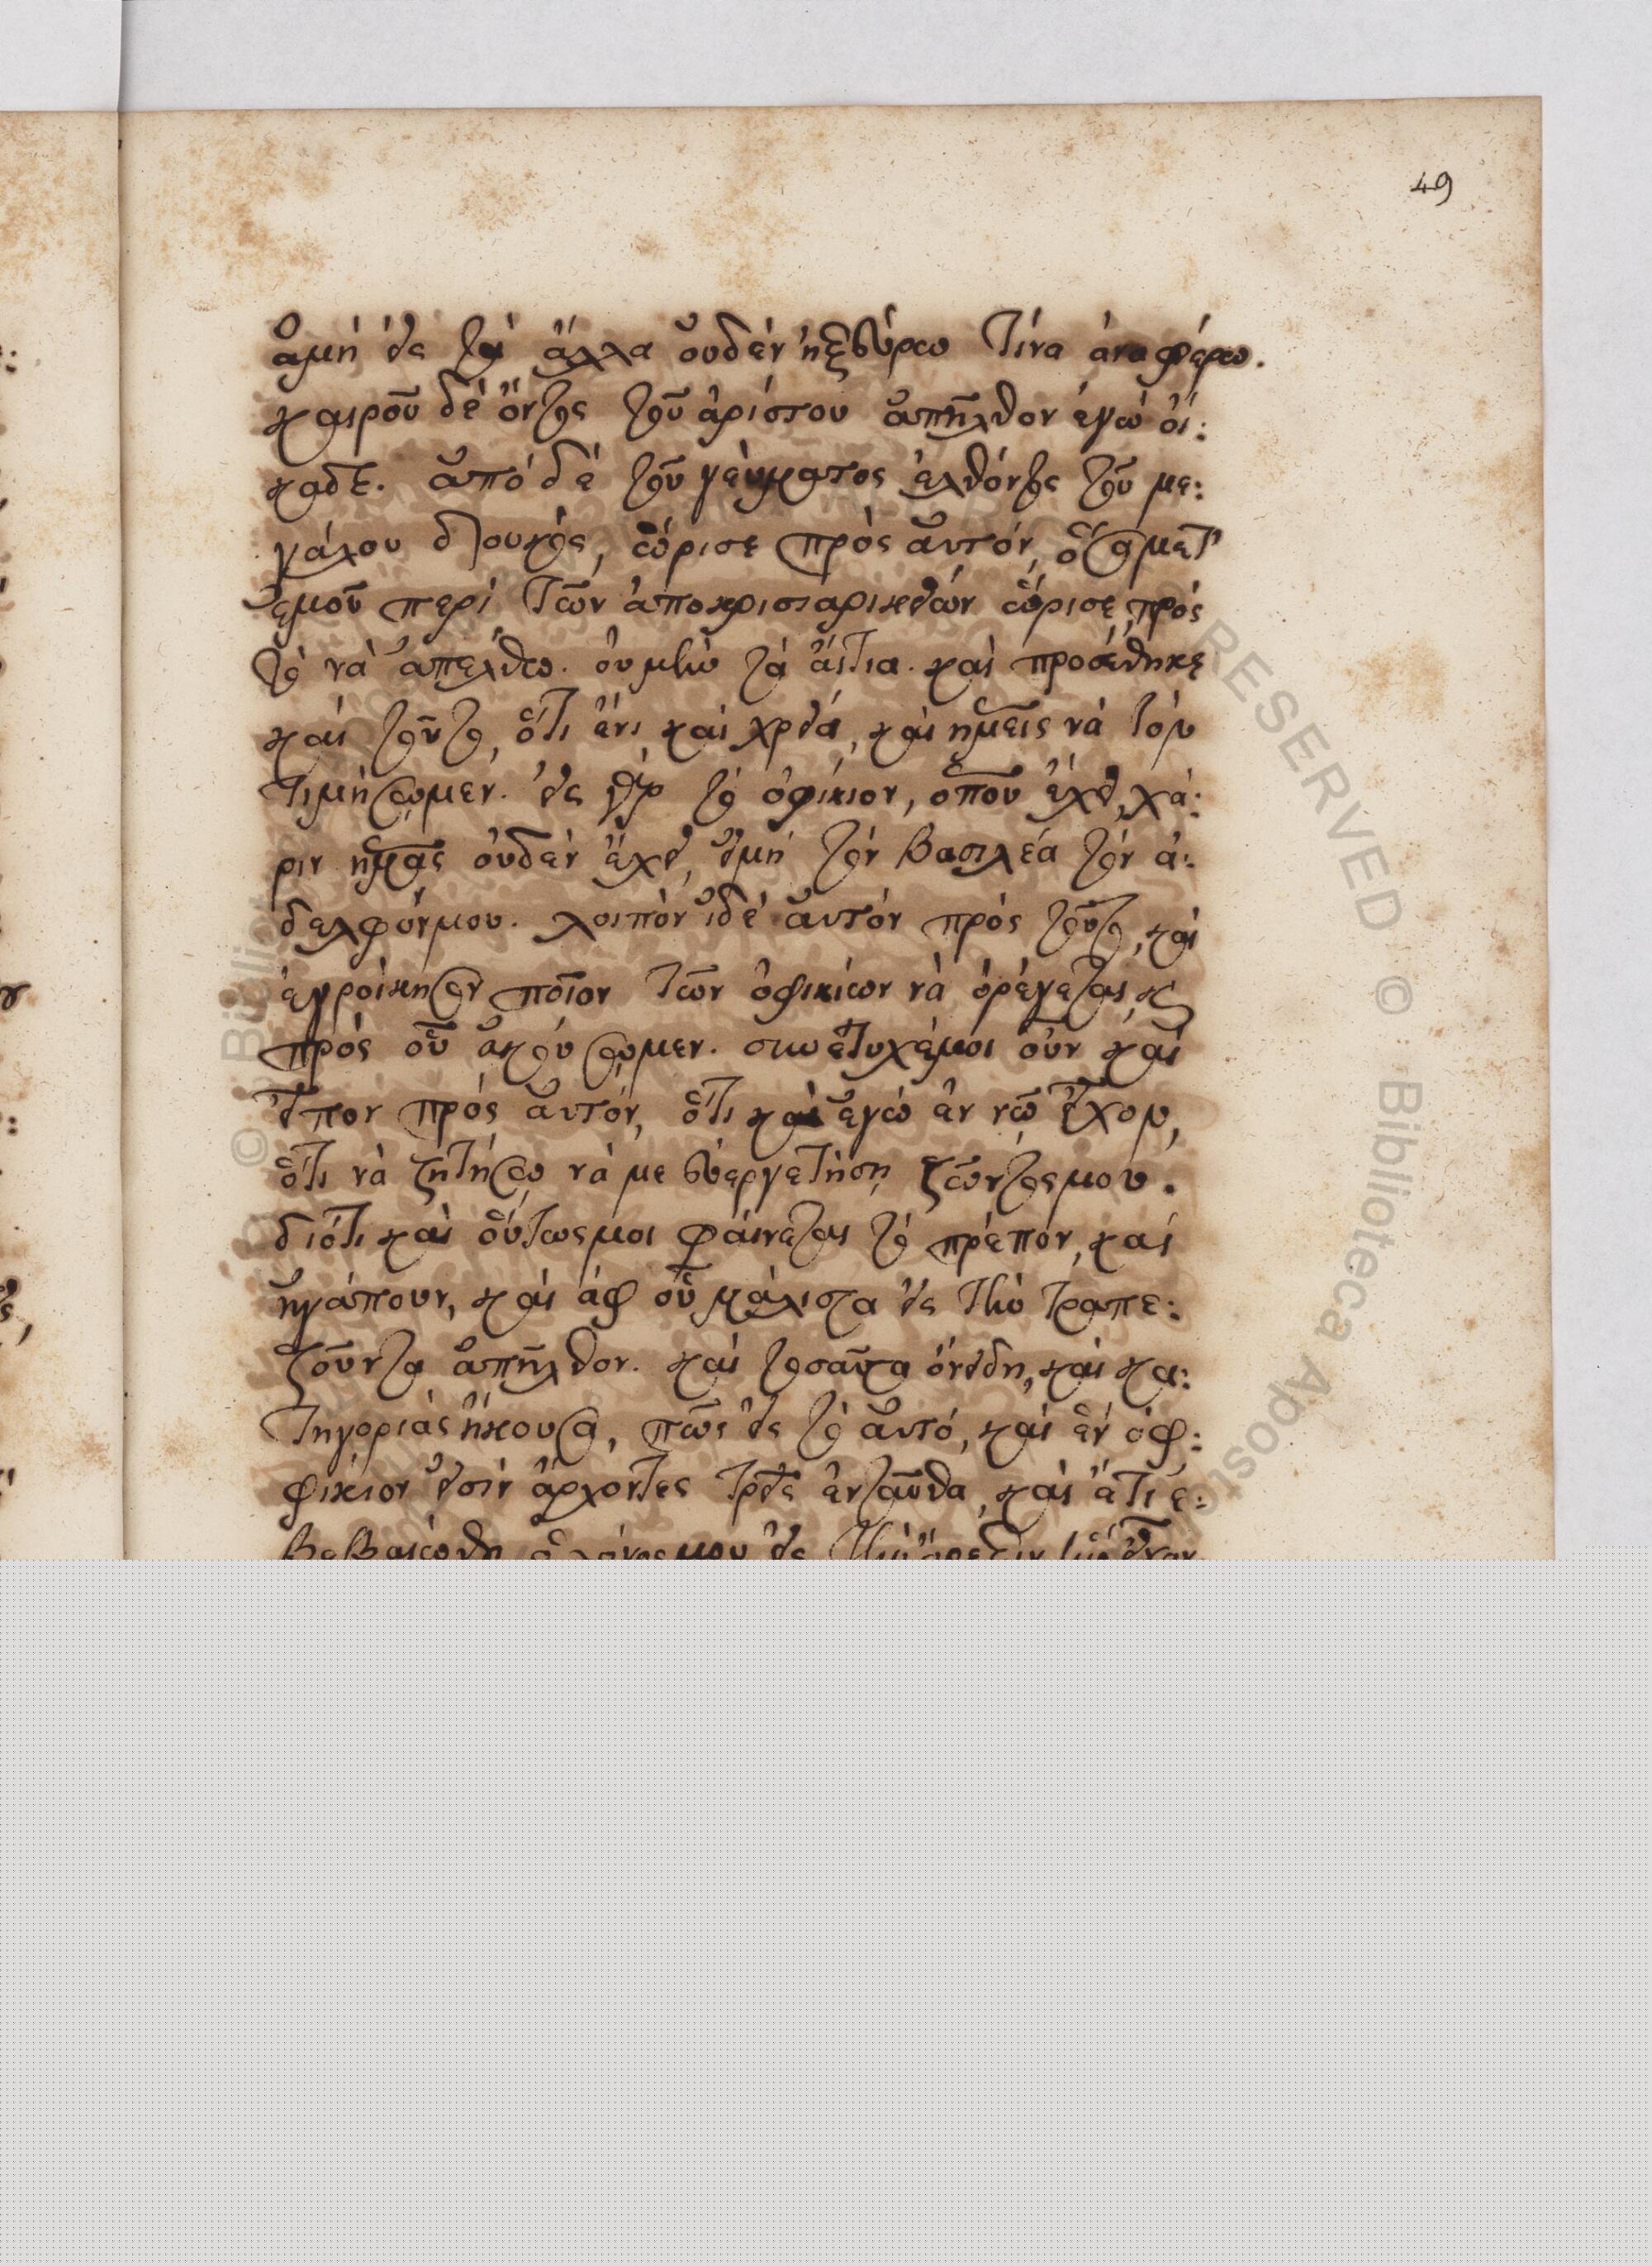 49
ἀμὴ εἰς τὰ ἄλλα οὐδὲν ἠξεύρω τίνα ἀναφέρω.
καιροῦ δὲ ὄντος τοῦ ἀρίστου ἀπῆλθον ἐγὼ οἴ:
καδε. ἀπὸ δὲ τοῦ γεύματος ἐλθόντος τοῦ με:
γάλου δουκὸς, ὥρισε πρὸς αὐτόν, ὅσα μετ'
ἐμοῦ περὶ τῶν ἀποκρισιαρικειῶν ὥρισε, πρὸς
τὸ νὰ ἀπέλθω. οὐ μὴν τὰ αἴτια. καὶ προσέθηκε
καὶ τοῦτο, ὅτι ἔνι καὶ χρεία, καὶ ἡμεῖς νὰ τὸν
τιμήσωμεν. εἰς γὰρ τὸ ὀφίκιον, ὁποῦ ἔχει, χά:
ριν ἡμᾶς οὐδὲν ἔχει, εἰμὴ τὸν βασιλέα τὸν ἀ:
δελφόν μου. λοιπὸν ἰδὲ αὐτὸν πρὸς τοῦτο, καὶ
ἐγροίκησον ποῖον τῶν ὀφικίων νὰ ὀρέγεται, κ
πρὸς οὗ ἀκούσωμεν. συνέτυχέ μοι οὖν καὶ
εἶπον πρὸς αὐτόν, ὅτι καὶ ἐγὼ ἐν νῷ εἶχον,
ὅτι νὰ ζητήσω νὰ με εὐεργετήσῃ ζῶντός μου.
διότι καὶ οὕτως μοι φαίνεται τὸ πρέπον, καὶ
ἠγάπουν, καὶ ἀφ οὗ μάλιστα εἰς τὴν Τραπε:
ζοῦντα ἀπῆλθον. καὶ τοσαῦτα ὀνείδη, καὶ κα:
τηγορίας ἤκουσα, πῶς εἰς τὸ αὐτό, καὶ ἓν ὀφ:
φίκιον εἰσὶν ἄρχοντες τρεῖς ἐνταῦθα, καὶ ἔτι ἐ: